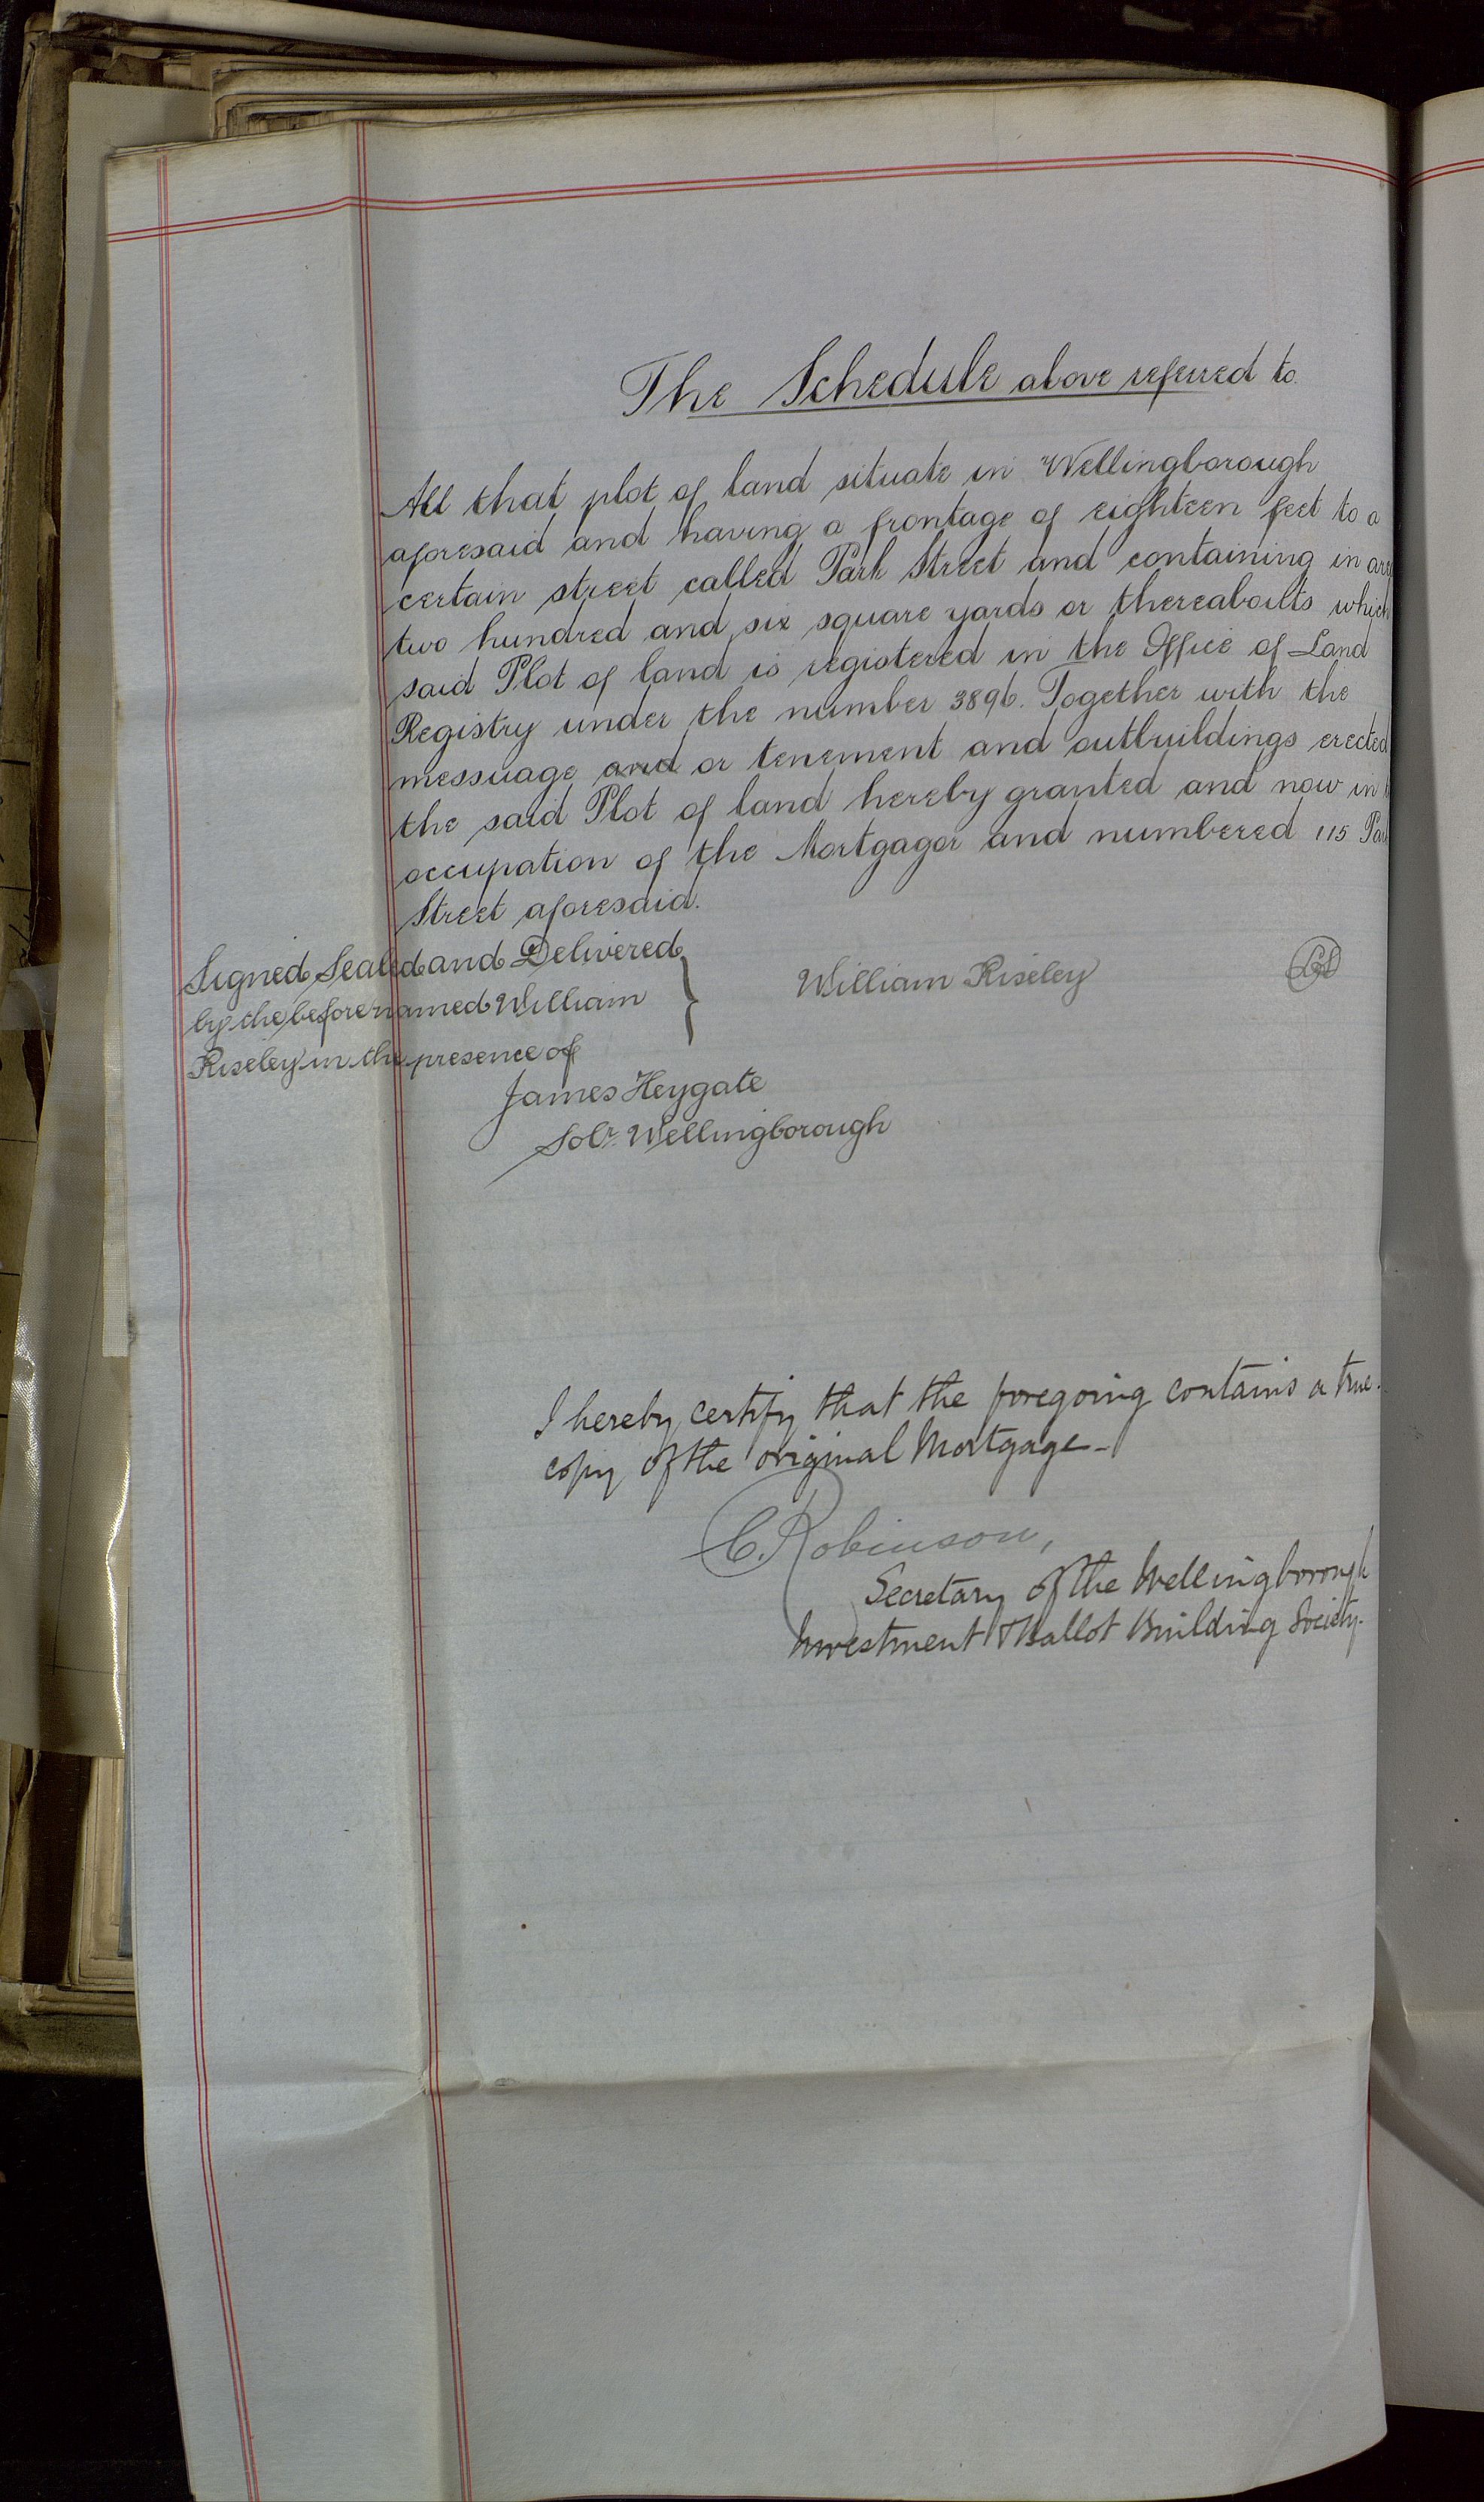 The Schedule above referred to.
All that plot of land situate in Wellingborough
aforesaid and having a frontage of eighteen feet to a
certain street called Park Street and containing in
two hundred and six square yards or thereabouts which
said Plot of land is registered in the Office of Land
Registry under the number 3896. Together with the
messuage and or tenement and outbuildings erected
the said Plot of land hereby granted and now in
occupation of the Mortgagor and numbered 115
Street aforesaid.
Signed Sealed and Delivered
by the before named William
Riseley in the presence of
William Riseley
LS
James Heygate
Solr. Wellingborough
I hereby certify that the foregoing contains a true
copy of the original Mortgage -
C. Robinson,
Secretary of the Wellingborough
Investment & Ballot Building Society.